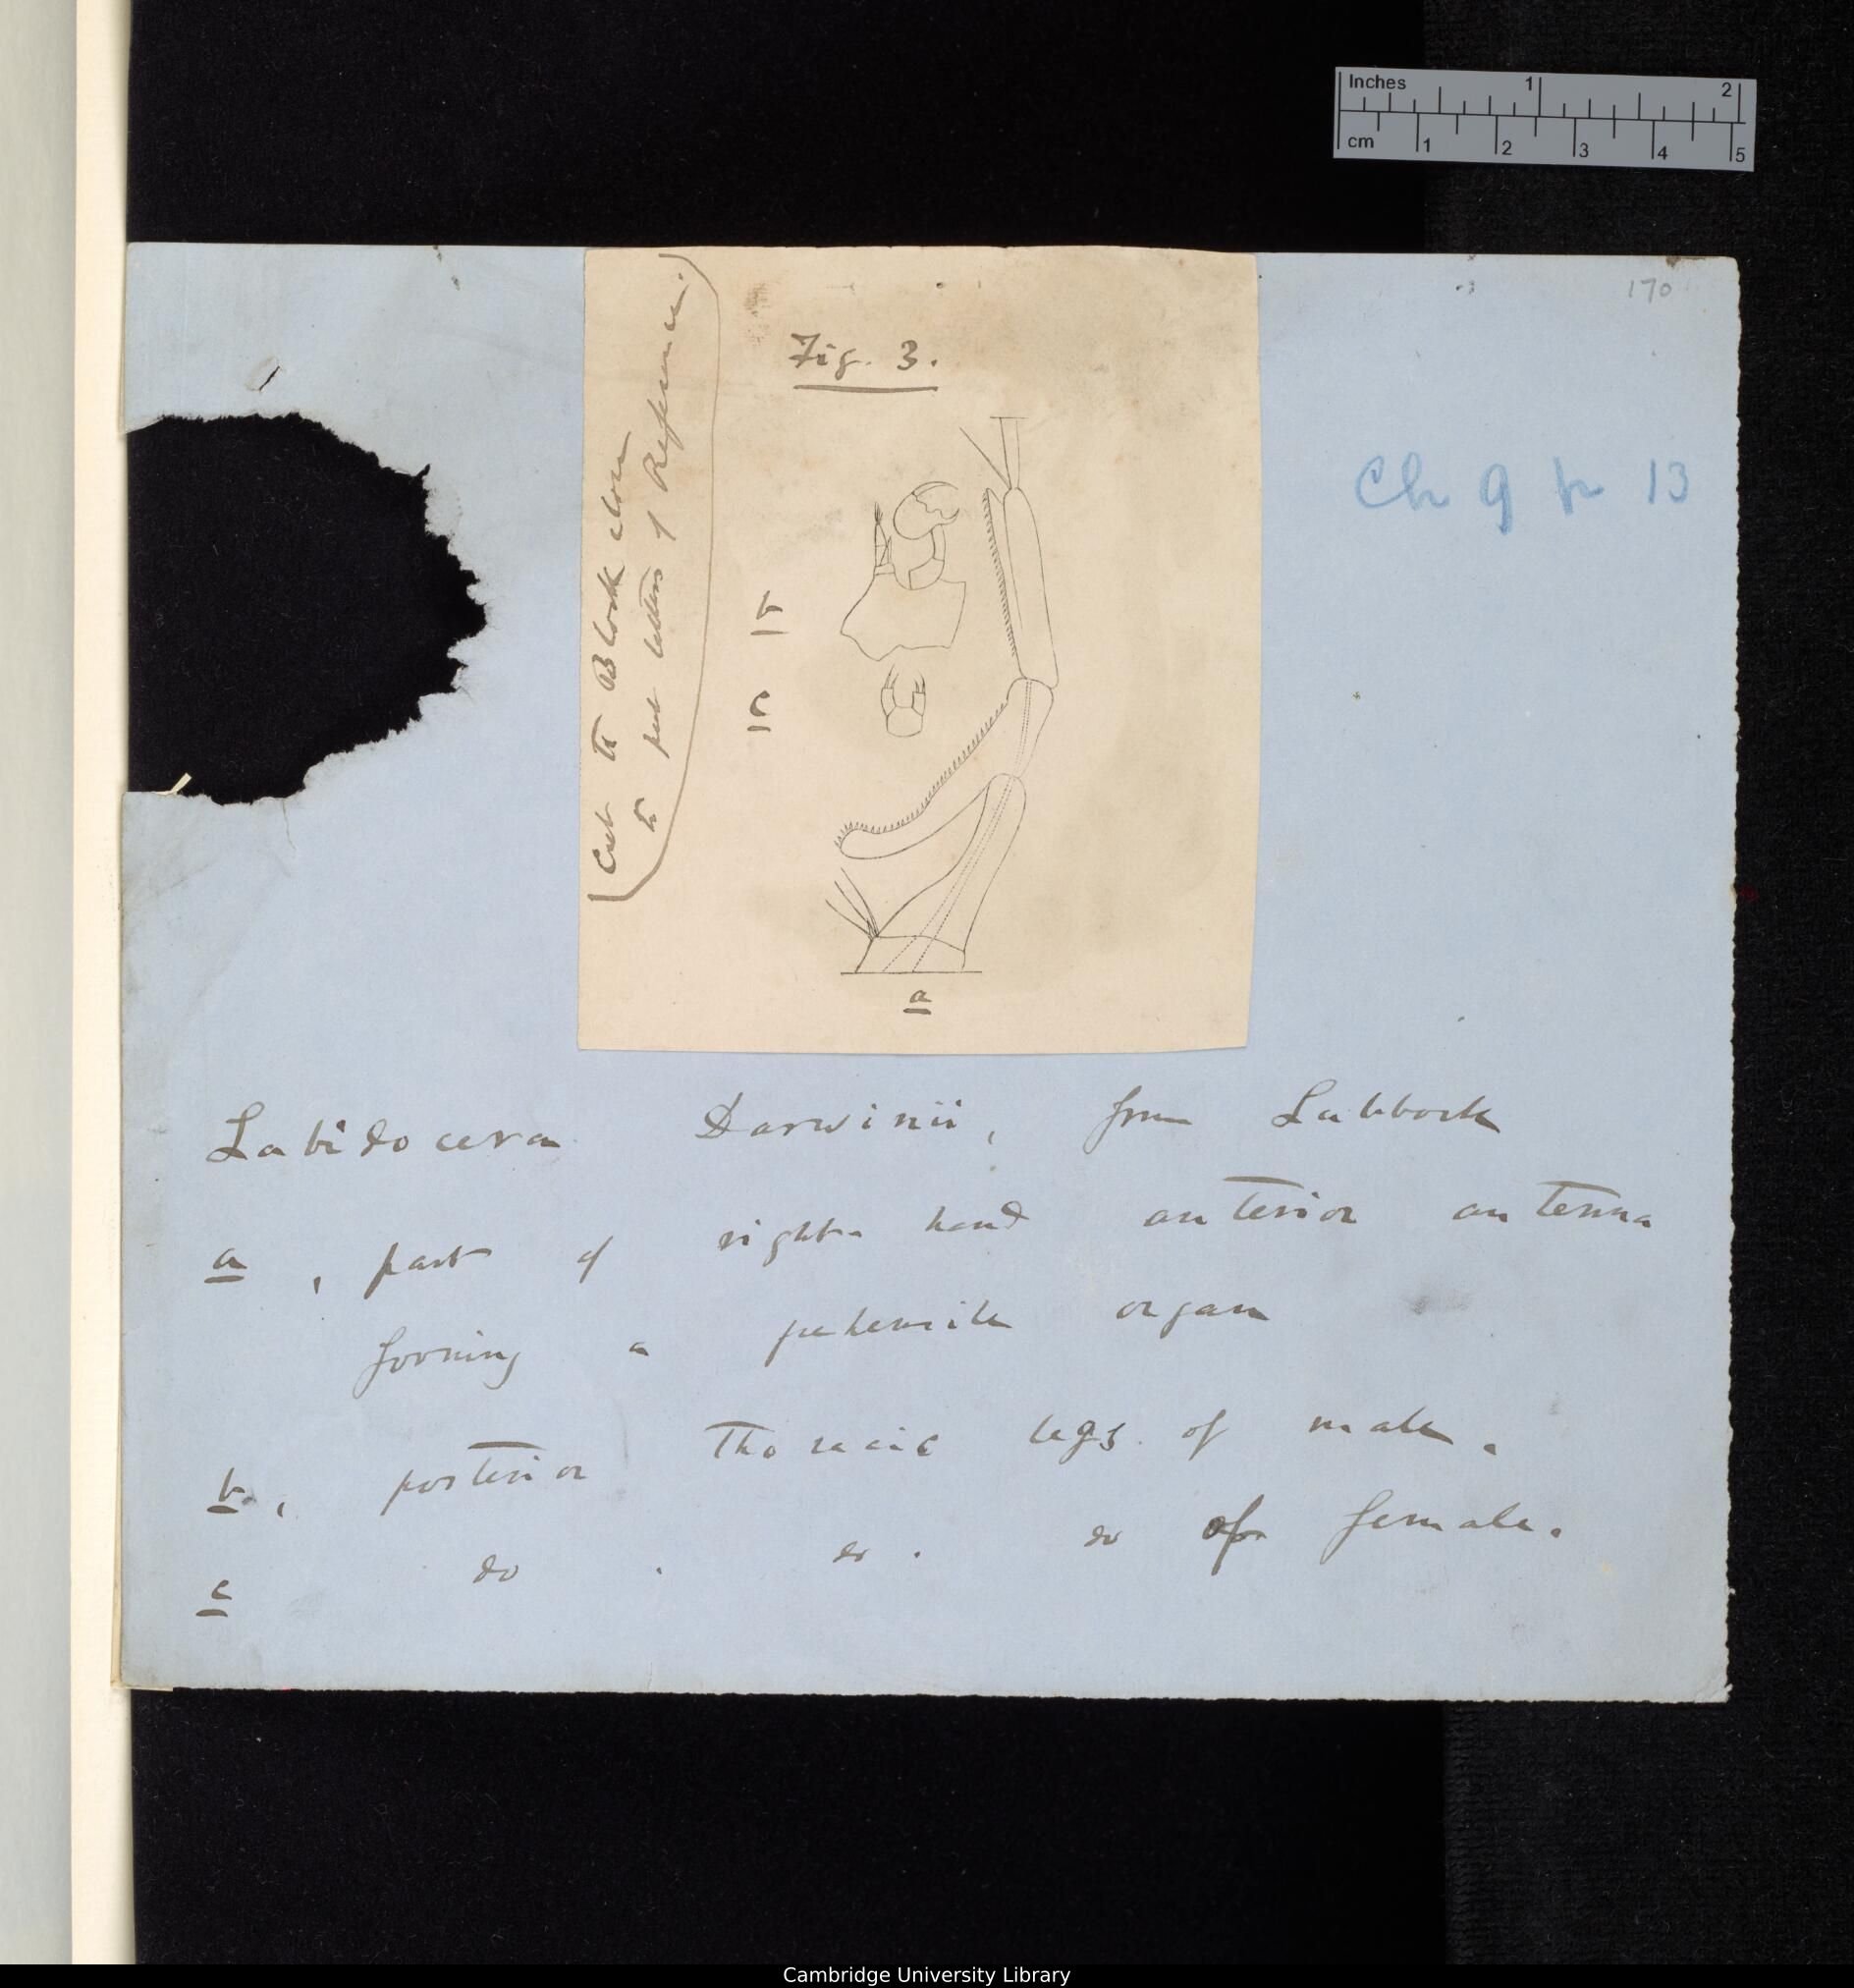 Inches 1 2
cm 1 2 3 4 5
170
Fig. 3.
(Cut to Block close
to put letters of Reference.)
Ch 9 p 13
b
c
a
Labidocera Darwinii, from Lubbock
a, part of right-hand anterior antenna
forming a prehensile organ
b, posterior Thoracic legs of male.
c do. do. do of female.
Cambridge University Library